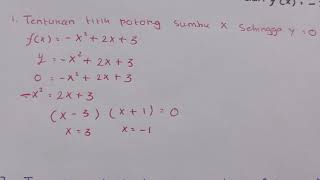 y(x) = -
1. Tentukan titik potong sumbu x sehingga y = 0
f(x) = -x² + 2x + 3
y = -x² + 2x + 3
0 = -x² + 2x + 3
-x² = 2x + 3
(x - 3) . (x + 1) = 0
x = 3 x = -1